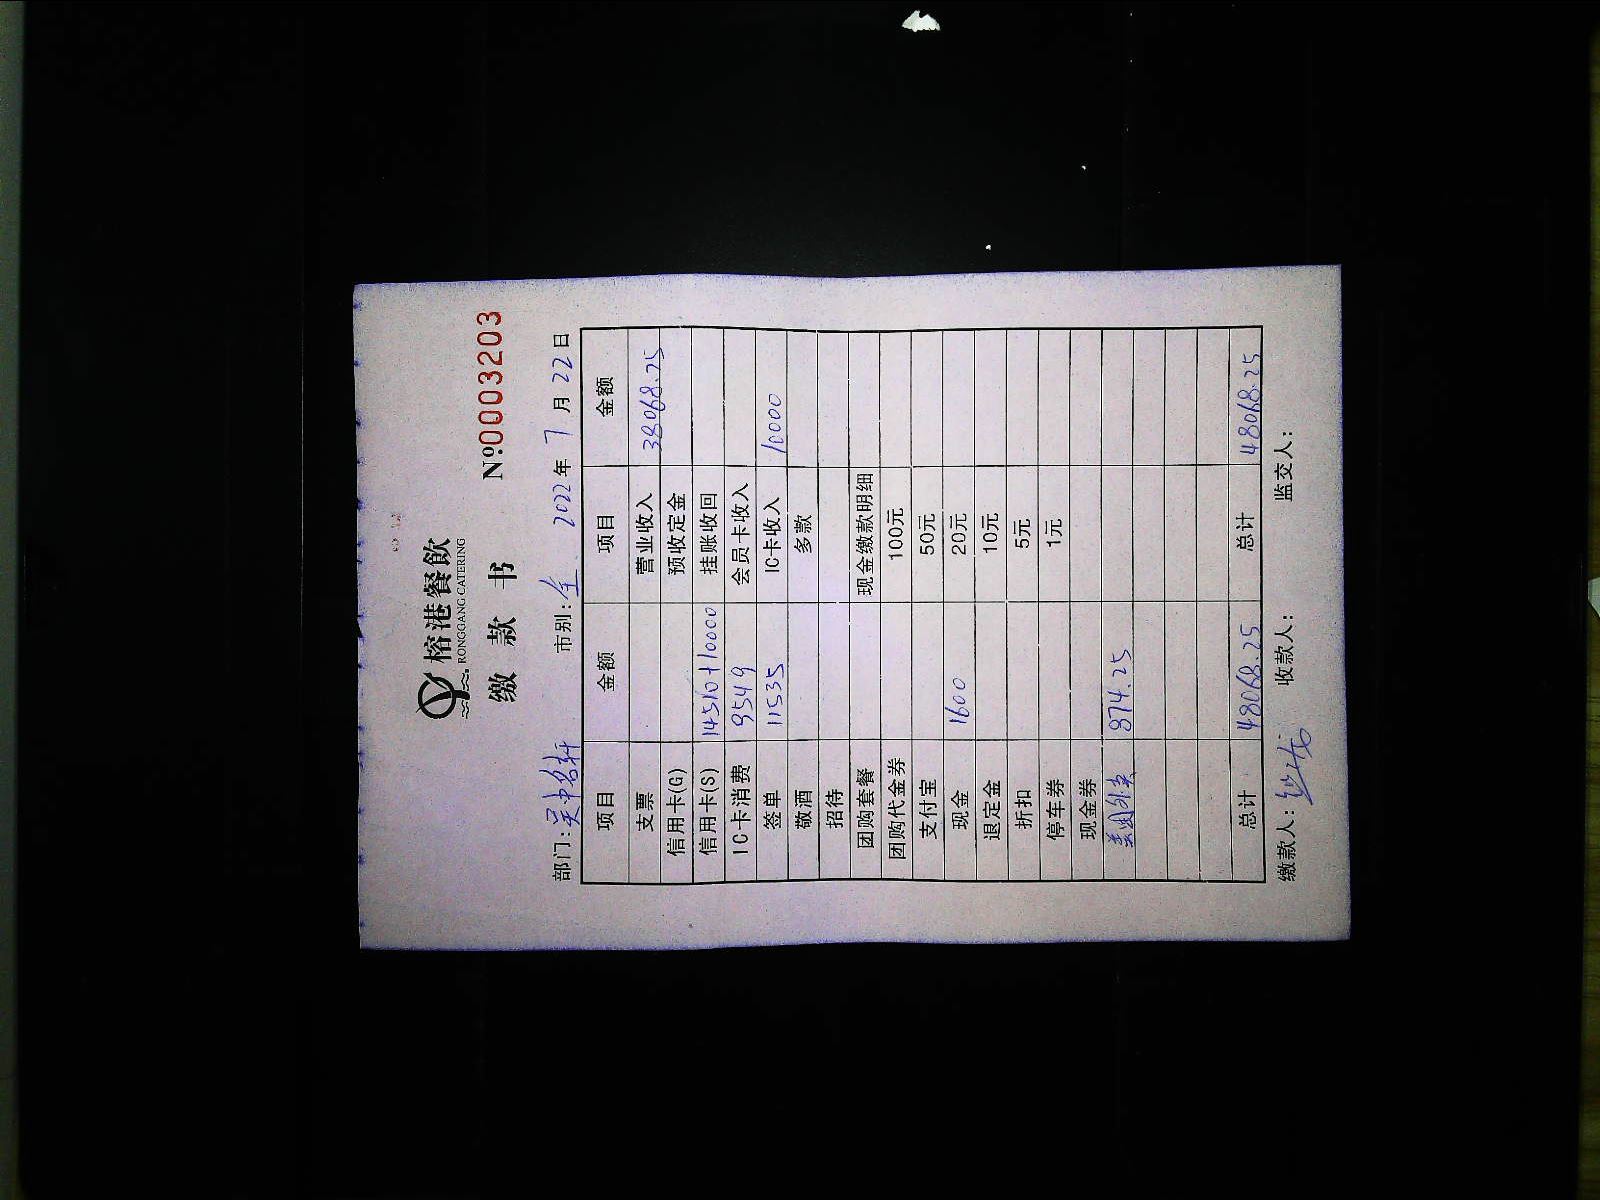 榕港餐飲
RONGGANG CATERING
缴 款 书 №0003203
部门:吴中名轩 市别:全 2022年7月22日
项目 金额 项目 金额
支票 营业收入 38068.25
信用卡(G) 预收定金
信用卡(S) 14510+10000 挂账收回
IC卡消费 9549 会员卡收入
签单 11535 IC卡收入 10000
敬酒 多款
招待
团购套餐 现金缴款明细
团购代金券 100元
支付宝 50元
现金 1600 20元
退定金 10元
折扣 5元
停车券 1元
现金券
美团外卖 874.25
总计 48068.25 总计 48068.25
缴款人: 收款人: 监交人: